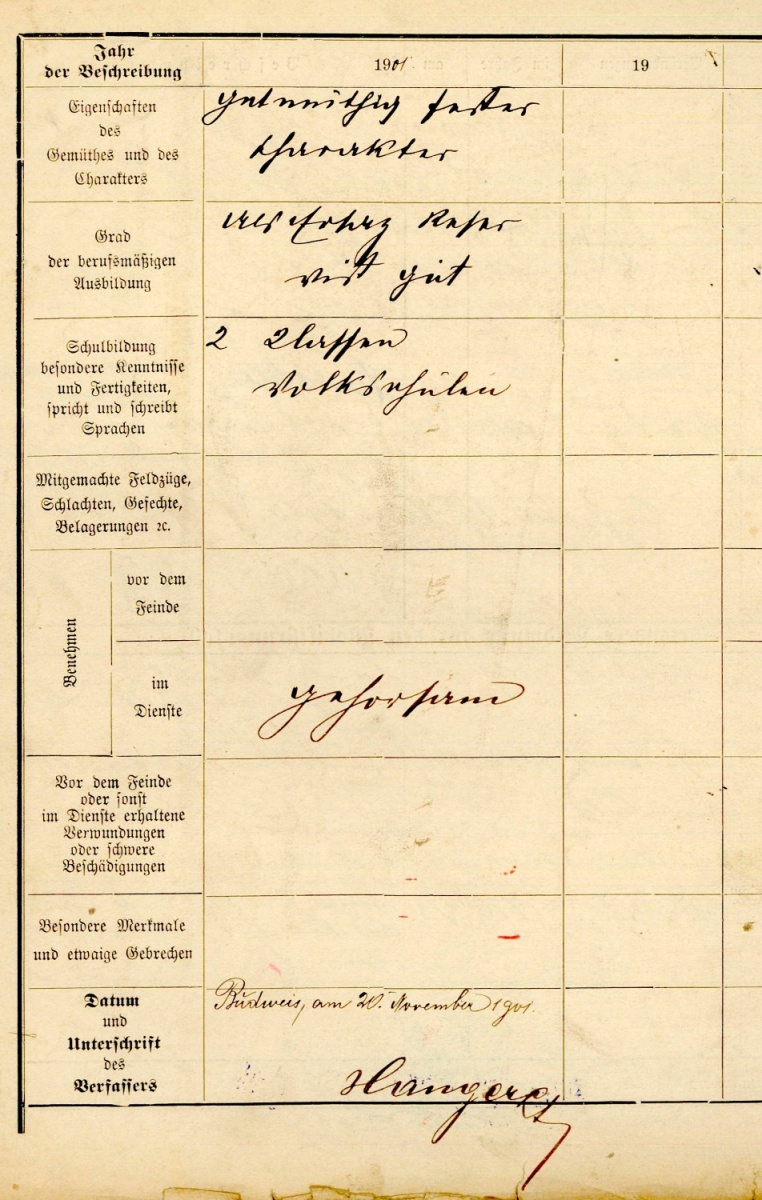 Jahr
der Beschreibung
1901
19
Eigenschaften
des
Gemüthes und des
Charakters
gutmüthig fester
Charakter
Grad
der berufsmäßigen
Ausbildung
als Ersatz Reser
vist gut
Schulbildung
besondere Kenntnisse
und Fertigkeiten,
spricht und schreibt
Sprachen
2 Classen
Volksschulen
Mitgemachte Feldzüge,
Schlachten, Gefechte,
Belagerungen ꝛc.
Benehmen
vor dem
Feinde
im
Dienste
gehorsam
Vor dem Feinde
oder sonst
im Dienste erhaltene
Verwundungen
oder schwere
Beschädigungen
Besondere Merkmale
und etwaige Gebrechen
Datum
und
Unterschrift
des
Verfassers
Budweis, am 20. November 1901.